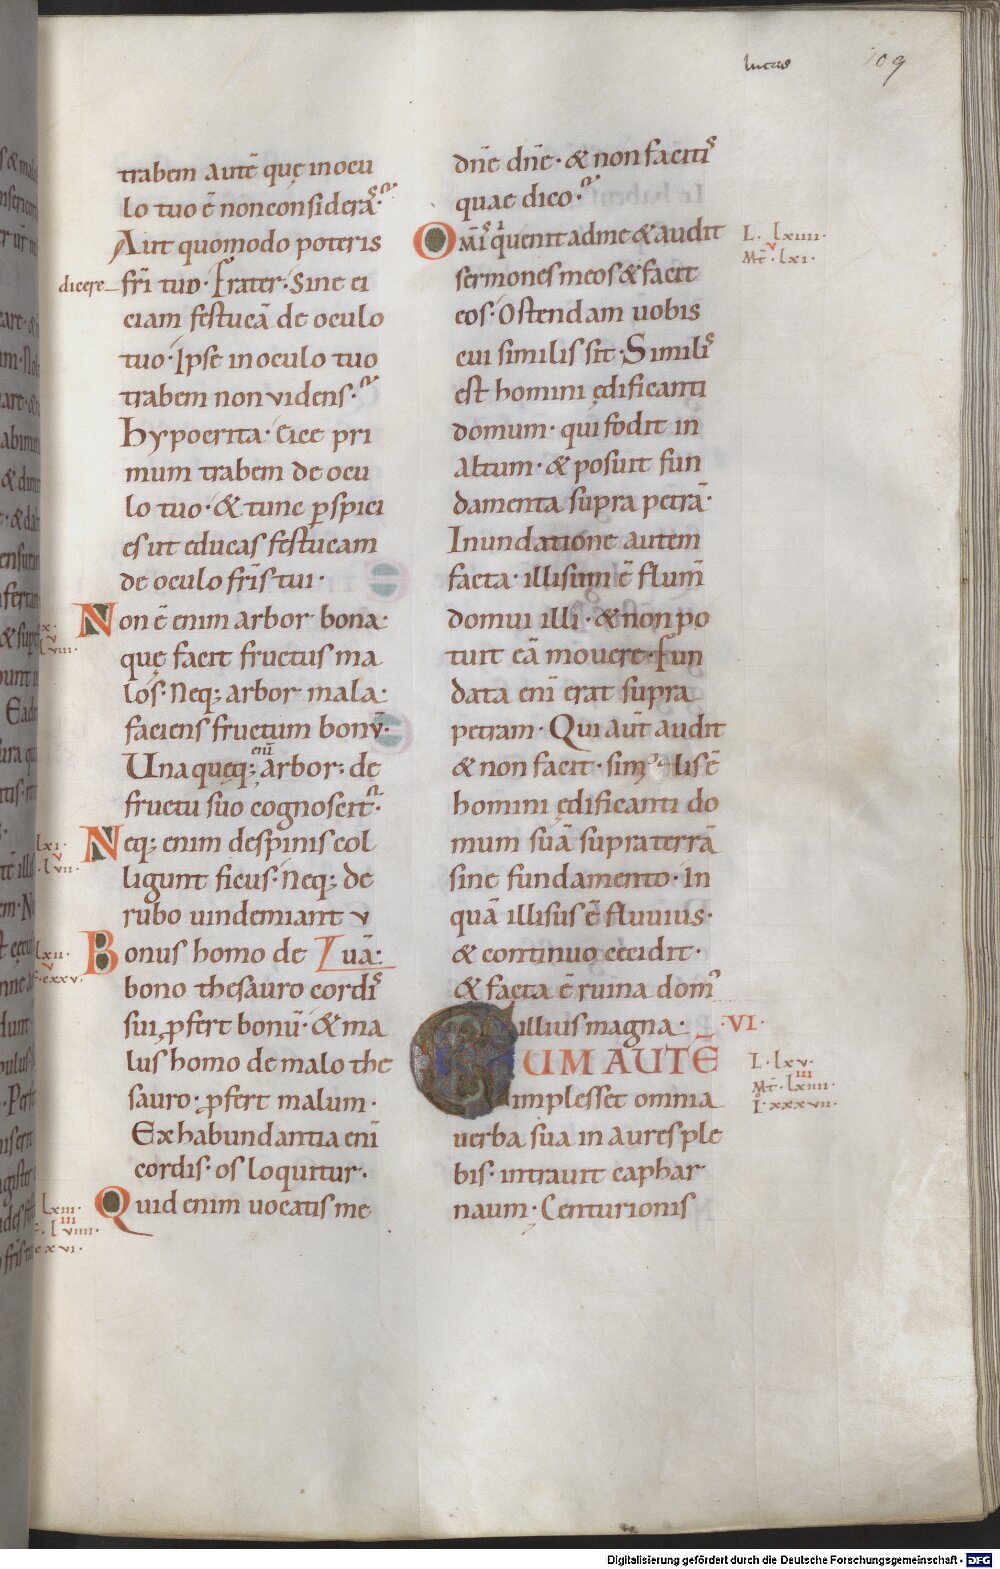 lucas 109
trabem autē quę in ocu
lo tuo ē non consideras.
Aut quomodo poteris
dicere frī tuo. Frater. Sine ei
ciam festucā de oculo
tuo. Ipse in oculo tuo
trabem non videns.
Hypocrita. Eice pri
mum trabem de ocu
lo tuo. & tunc ꝑspici
es ut educas festucam
de oculo frīs tui.
Non ē enim arbor bona.
quę facit fructus ma
los. Neq; arbor mala.
faciens fructum bonū.
Una quęq; enī arbor. de
fructu suo cognoscit.
Neq; enim de spinis col
ligunt ficus. Neq; de
rubo uindemiant v
Bonus homo de uā.
bono thesauro cordis
sui ꝓfert bonū. & ma
lus homo de malo the
sauro. ꝓfert malum.
Ex habundantia enī
cordis. os loquitur.
Quid enim uocatis me
x.
lviii.
lxi.
lvii.
lxii.
cxxv.
lxiii.
iii
lviiii.
cxvi.
dn̄e dn̄e. & non facitis
quae dico.
Om̄is qui uenit ad me & audit
sermones meos & facit
eos. Ostendam uobis
cui similis sit. Similis
est homini ędificanti
domum. qui fodit in
altum. & posuit fun
damenta supra petrā.
Inundatione autem
facta. illisum ē flum̄
domui illi. & non po
tuit eā mouere. Fun
data enī erat supra
petram. Qui aūt audit
& non facit. similis ē
homini ędificanti do
mum suā supra terrā
sine fundamento. In
quā illisus ē fluuius.
& continuo cecidit.
& facta ē ruina domus
illius magna. .VI.
CUM AUTĒ
implesset omnia
uerba sua in aures ple
bis. intrauit caphar
naum. Centurionis
L. lxiiii.
v
Mt̄. lxi.
L. lxv.
iii
Mt̄. lxiiii.
I. xxxvii.
Digitalisierung gefördert durch die Deutsche Forschungsgemeinschaft - DFG